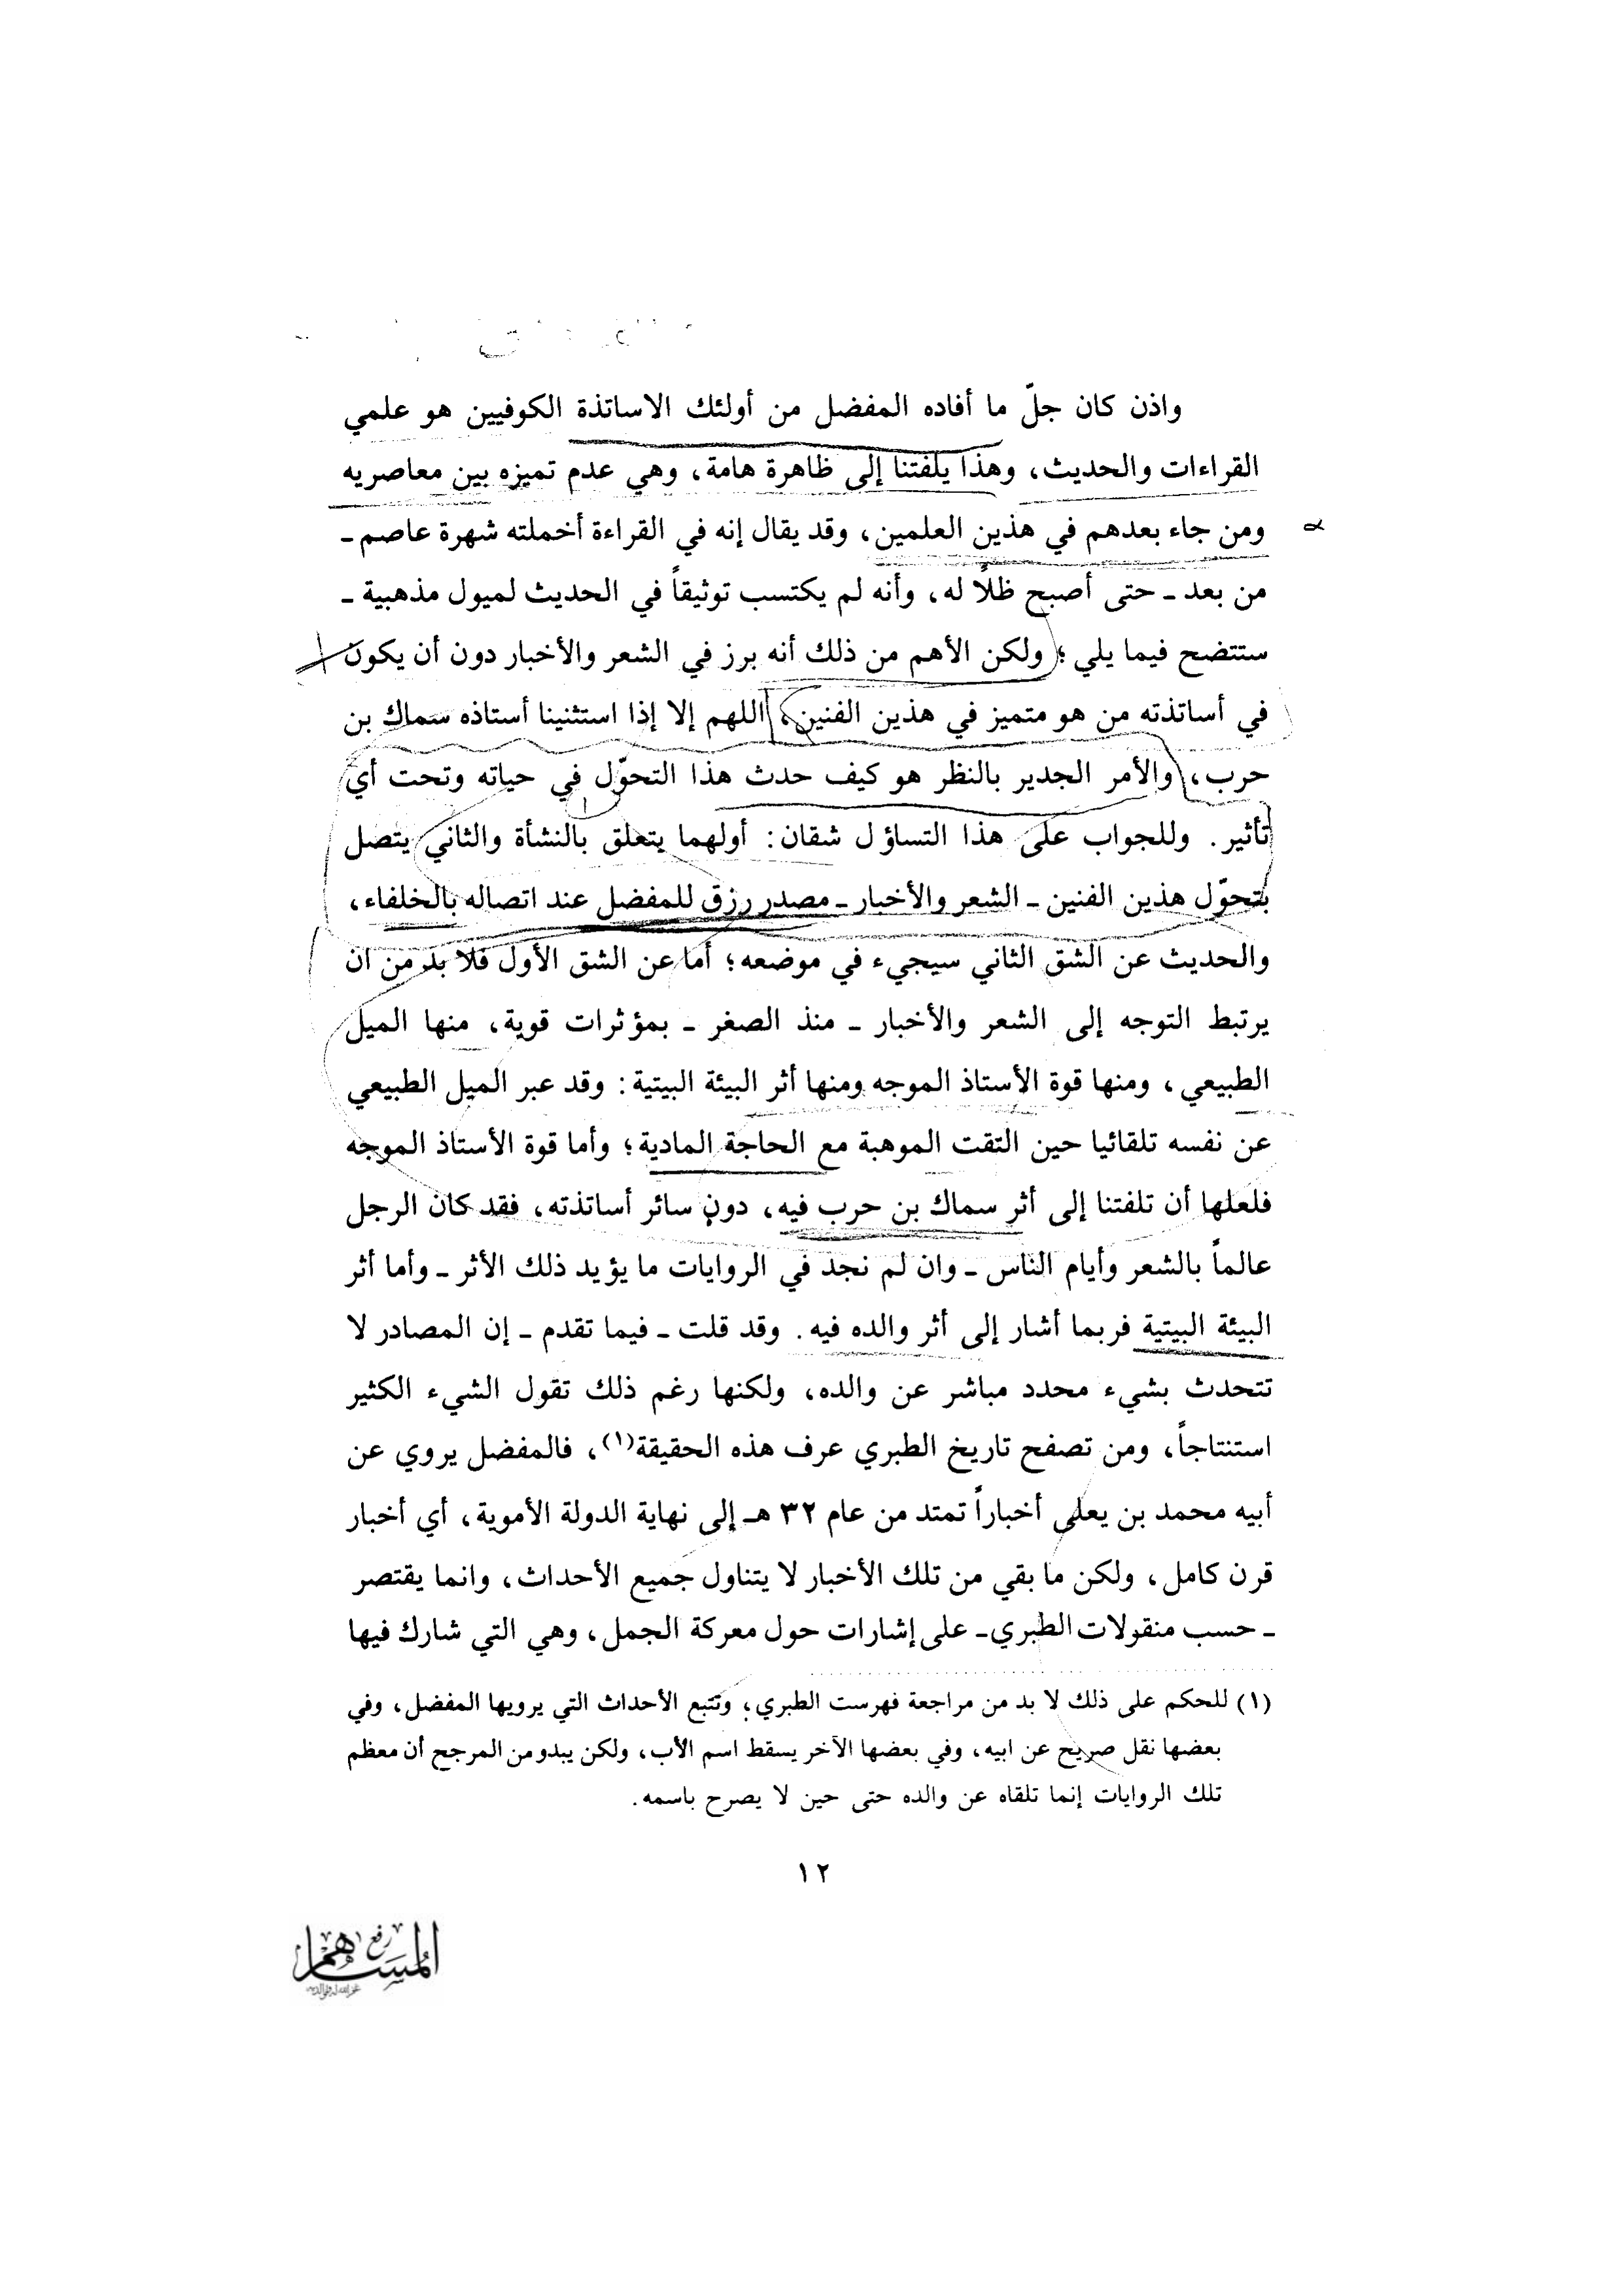 واذن كان جلّ ما أفاده المفضل من أولئك الاساتذة الكوفيين هو علمي
القراءات والحديث، وهذا يلفتنا إلى ظاهرة هامة، وهي عدم تميزه بين معاصريه
ومن جاء بعدهم في هذين العلمين، وقد يقال إنه في القراءة أخملته شهرة عاصم ـ
من بعد ـ حتى أصبح ظلاً له، وأنه لم يكتسب توثيقاً في الحديث لميول مذهبية ـ
ستتضح فيما يلي؛ ولكن الأهم من ذلك أنه برز في الشعر والأخبار دون أن يكون
في أساتذته من هو متميز في هذين الفنين، اللهم إلا إذا استثنينا أستاذه سماك بن
حرب، والأمر الجدير بالنظر هو كيف حدث هذا التحوّل في حياته وتحت أي
تأثير. وللجواب على هذا التساؤل شقان: أولهما يتعلق بالنشأة والثاني يتصل
بتحوّل هذين الفنين ـ الشعر والأخبار ـ مصدر رزق للمفضل عند اتصاله بالخلفاء،
والحديث عن الشق الثاني سيجيء في موضعه؛ أما عن الشق الأول فلا بد من ان
يرتبط التوجه إلى الشعر والأخبار ـ منذ الصغر ـ بمؤثرات قوية، منها الميل
الطبيعي، ومنها قوة الأستاذ الموجه ومنها أثر البيئة البيتية: وقد عبر الميل الطبيعي
عن نفسه تلقائيا حين التقت الموهبة مع الحاجة المادية؛ وأما قوة الأستاذ الموجه
فلعلها أن تلفتنا إلى أثر سماك بن حرب فيه، دون سائر أساتذته، فقد كان الرجل
عالماً بالشعر وأيام الناس ـ وان لم نجد في الروايات ما يؤيد ذلك الأثر ـ وأما أثر
البيئة البيتية فربما أشار إلى أثر والده فيه. وقد قلت ـ فيما تقدم ـ إن المصادر لا
تتحدث بشيء محدد مباشر عن والده، ولكنها رغم ذلك تقول الشيء الكثير
استنتاجاً، ومن تصفح تاريخ الطبري عرف هذه الحقيقة(١)، فالمفضل يروي عن
أبيه محمد بن يعلى أخباراً تمتد من عام ٣٢ هـ إلى نهاية الدولة الأموية، أي أخبار
قرن كامل، ولكن ما بقي من تلك الأخبار لا يتناول جميع الأحداث، وانما يقتصر
ـ حسب منقولات الطبري ـ على إشارات حول معركة الجمل، وهي التي شارك فيها
(١) للحكم على ذلك لا بد من مراجعة فهرست الطبري؛ وتتبع الأحداث التي يرويها المفضل، وفي
بعضها نقل صريح عن ابيه، وفي بعضها الآخر يسقط اسم الأب، ولكن يبدو من المرجح أن معظم
تلك الروايات إنما تلقاه عن والده حتى حين لا يصرح باسمه.
١٢
رفع
المساهم